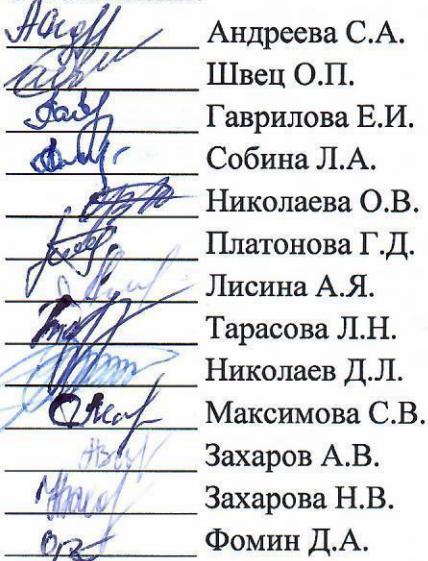 Андреева С.А.
Швец О.П.
Гаврилова Е.И.
Собина Л.А.
Николаева О.В.
Платонова Г.Д.
Лисина А.Я.
Тарасова Л.Н.
Николаев Д.Л.
Максимова С.В.
Захаров А.В.
Захарова Н.В.
Фомин Д.А.